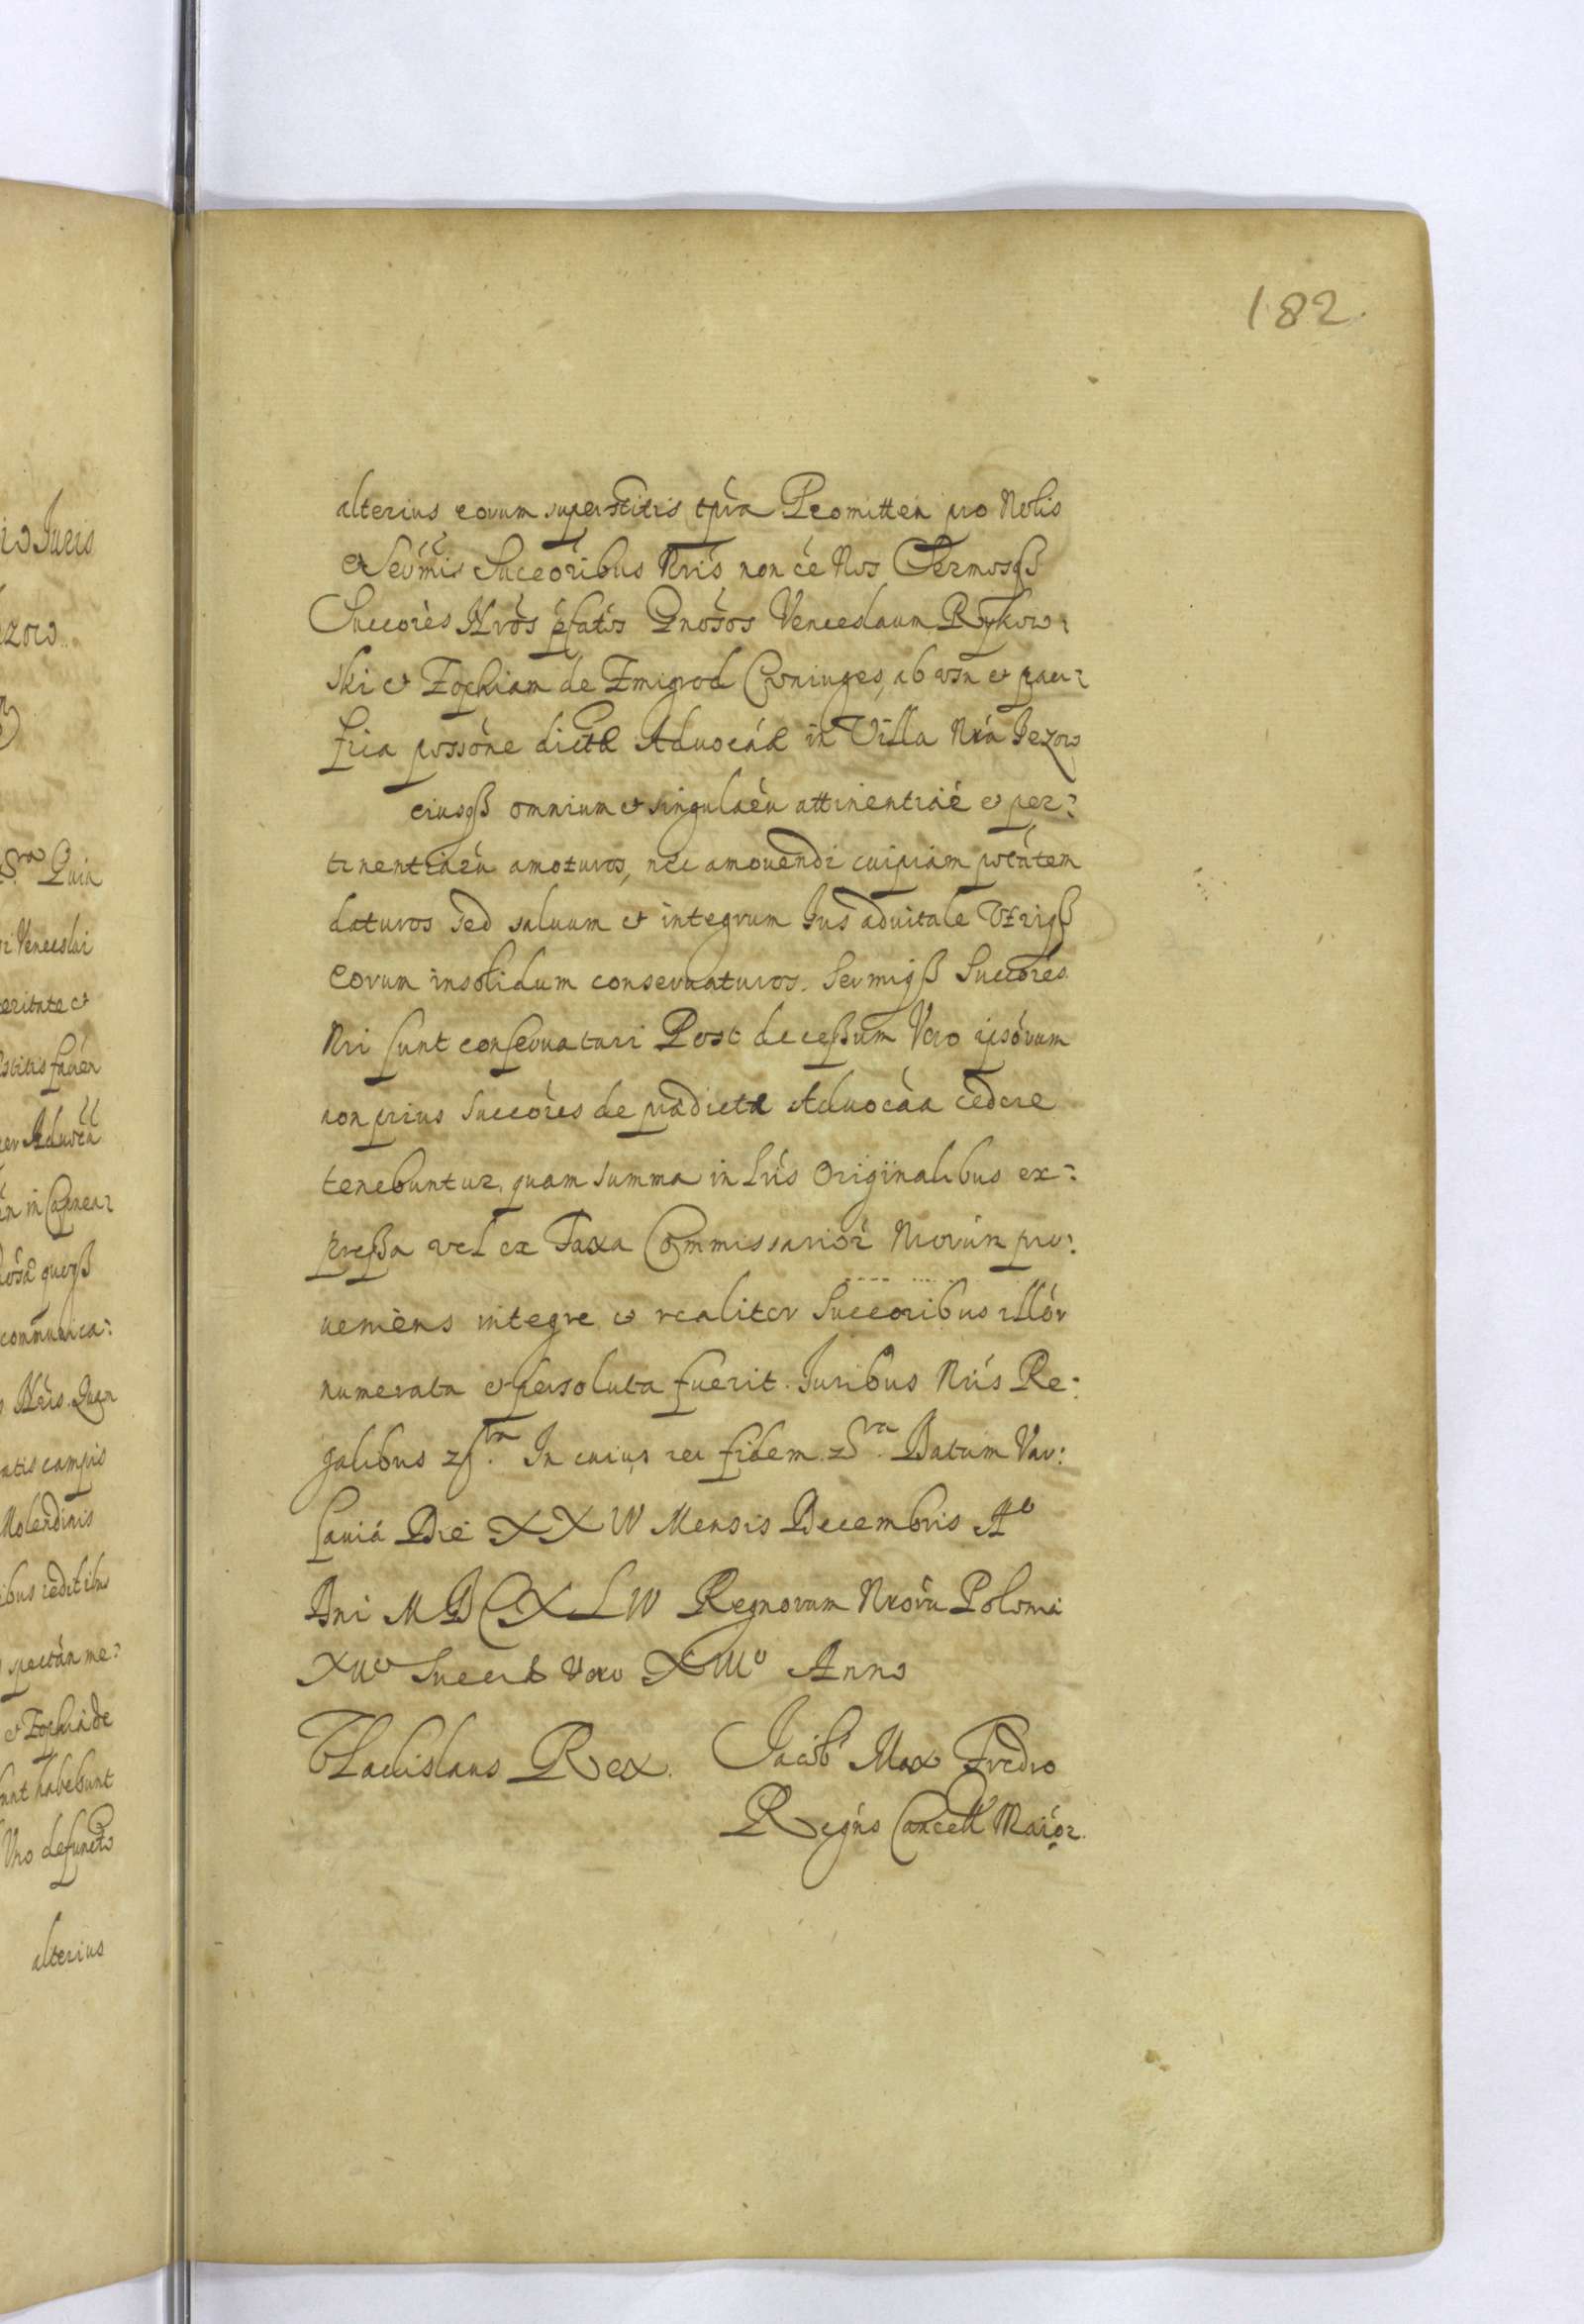 182
alterius eorum superstitis tpra Promitten pro Nobis
et Sermis Succeoribus Nris non ee Nos Sermosqß
Succores Nros pfatos Gnosos Venceslaum Rykow:
ski et Zophiam de Zmigrod Coniuges, ab vsu et pau:
fica possone dictæ Advocaæ in Villa Nra Jezow
eiusqß omnium et singularu attinentiaru et per:
tinentiaru amoturos, nec amouendi cuipiam ptatem
daturos sed saluum et integrum Jus aduitale Vtriqß
eorum insolidum conseruaturos. Sermiqß Succores
Nri sunt conseruaturi Post decessum Vero ipsorum
non prius succores de prædicta Aduocaa cedere
tenebuntur, quam summa in Lris Originalibus ex:
pressa vel ex Taxa Commissarior Nrorum pro:
ueniens integre et realiter Succoribus illor
numerata et persoluta fuerit. Juribus Nris Re:
galibus zstra. In cuius rei fidem zSra. Datum Var:
sauiæ Die XXIV Mensis Decembris Ao
Dni MDCXLIV Regnorum Nroru Poloniæ
XIIo Sueciæ vero XIIIo Anno
Vladislaus Rex. Jacob Max Fredro
Regns Cancell Maior.
io Juris
ezow
Sra Quia
i Venceslai
eritate et
stitis
er Aduoca
in
queqß
communica:
Nris. Quam
atis campis
Molendinis
ibus reditibus
spectan me:
et Zophia de
unt habebunt
Vno defuncto
alterius